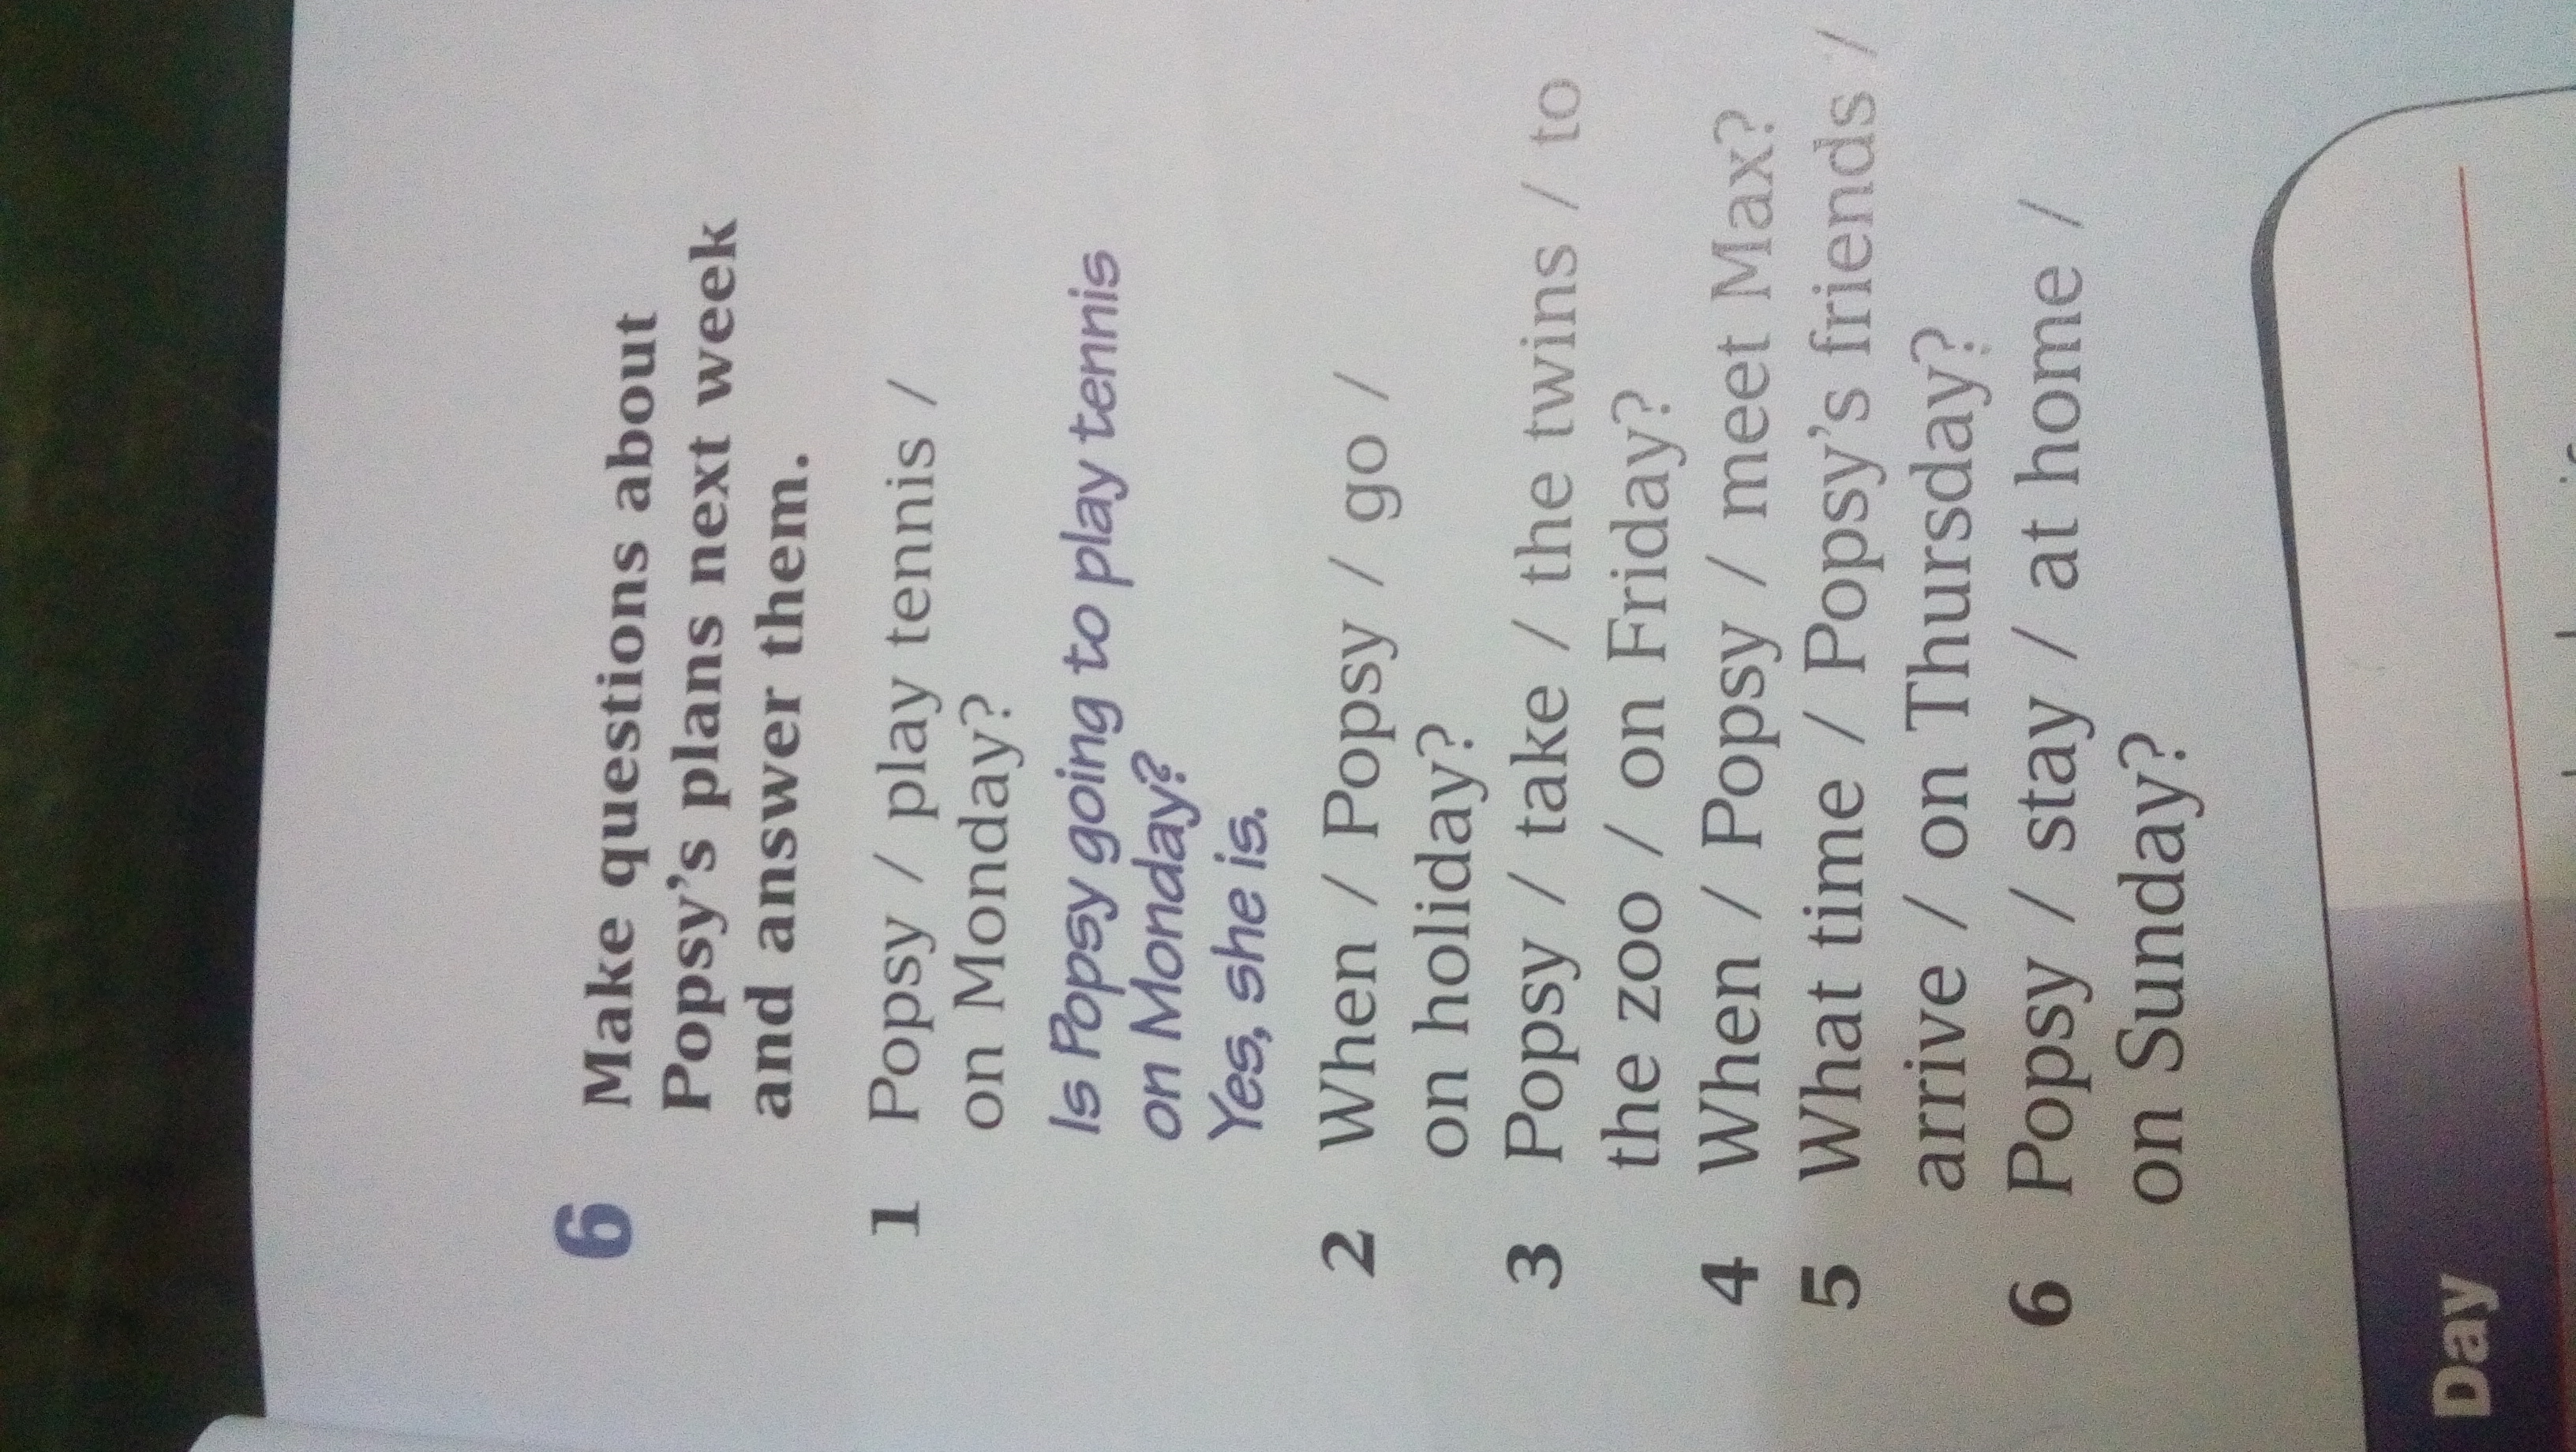 6 Make questions about
Popsy's plans next week
and answer them.
1 Popsy / play tennis /
on Monday?
Is Popsy going to play tennis
on Monday?
Yes, she is.
2 When / Popsy / go /
on holiday?
3 Popsy / take / the twins / to
the zoo / on Friday?
4 When / Popsy / meet Max?
5 What time / Popsy's friends /
arrive / on Thursday?
6 Popsy / stay / at home /
on Sunday?
Day